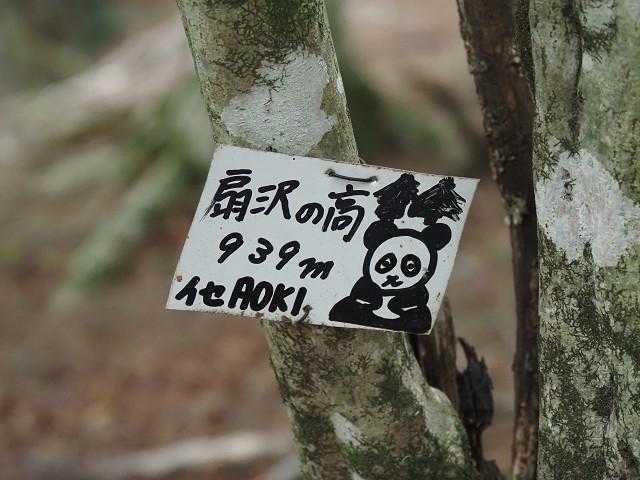 扇沢の高
939m
イセAOKI